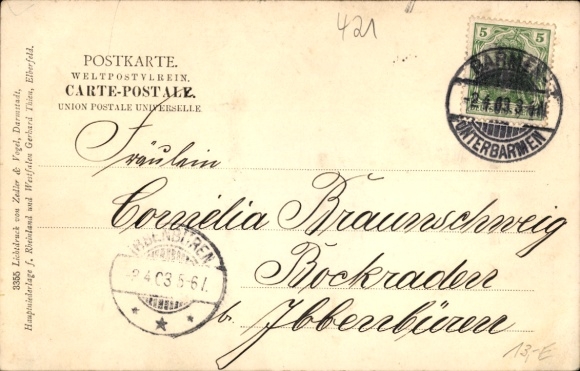 421
POSTKARTE.
WELTPOSTVEREIN.
CARTE-POSTALE.
UNION POSTALE UNIVERSELLE
5 5
BARMEN
2.4.03.
UNTERBARMEN
Fräulein
Cornélia Braunschweig
Bockraden
b. Ibbenbüren
IBBENBÜREN
2.4.03.5-6N.
3355 Lichtdruck von Zedler & Vogel, Darmstadt.
Hauptniederlage f. Rheinland und Westfalen Gerhard Thien, Elberfeld.
13,-E